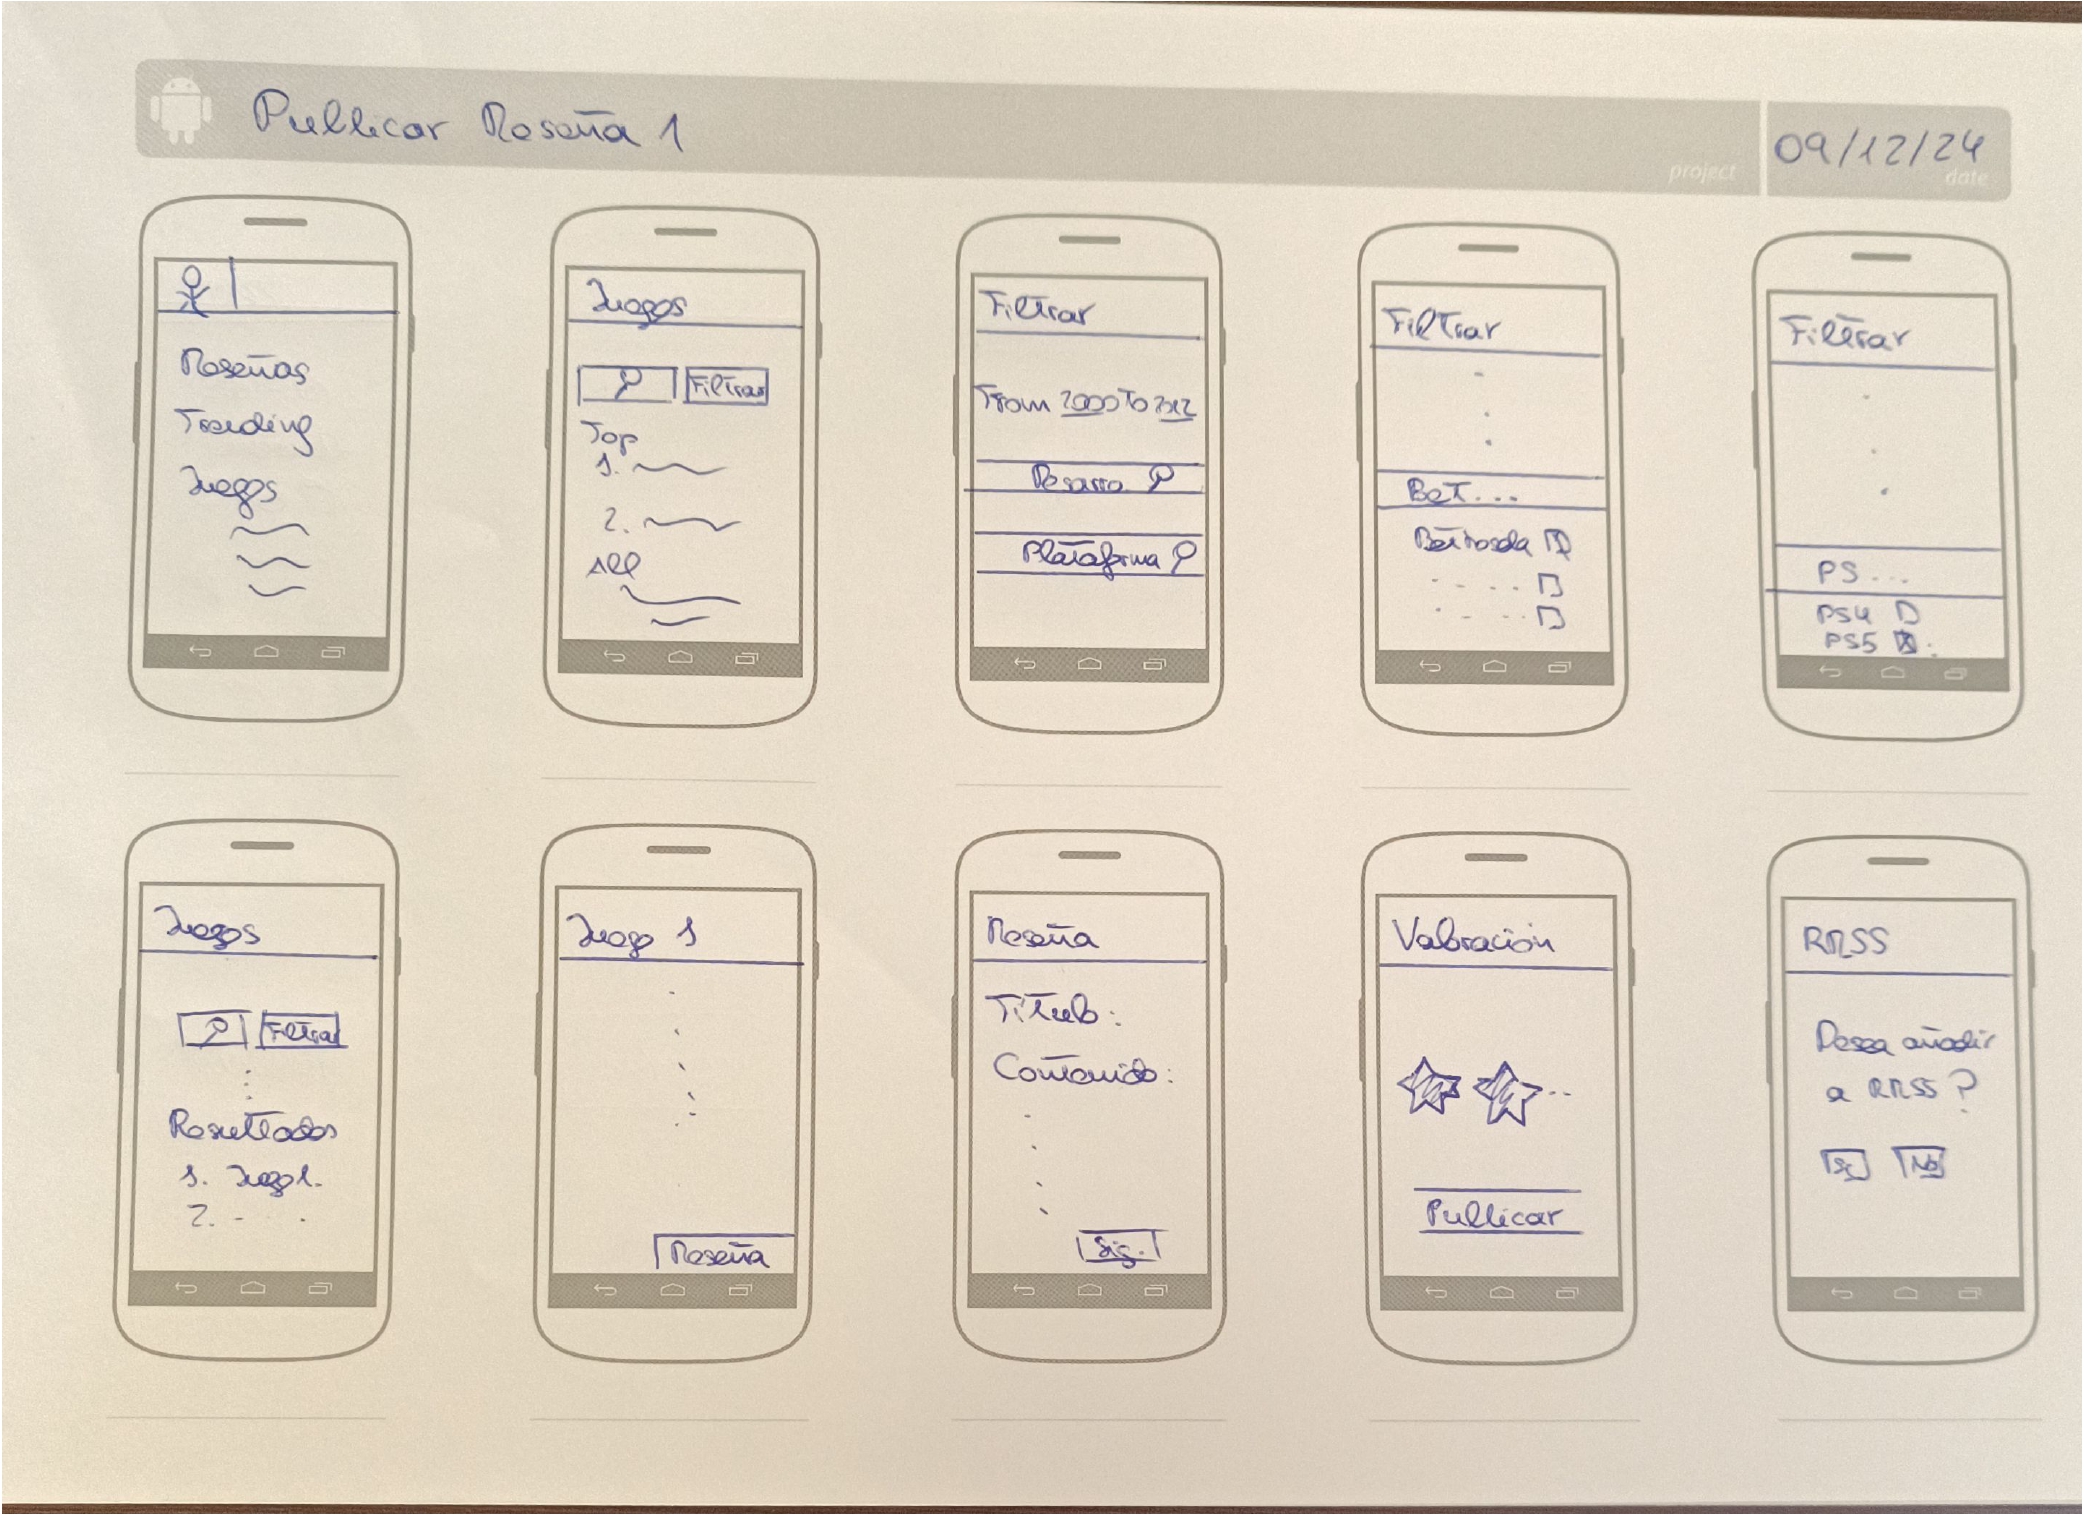 Publicar Reseña 1
project
09/12/24
date
Reseñas
Trending
Juegos
Juegos
Filtrar
Top
1.
2.
All
Filtrar
From 2000 To 2012
Desarro.
Plataforma
Filtrar
Bet...
Bethesda
Filtrar
PS...
PS4
PS5
Juegos
Filtrar
Resultados
1. Juego 1.
2. - .
Juego 1
Reseña
Reseña
Título:
Contenido:
Sig.
Valoración
Publicar
RRSS
Desea añadir
a RRSS?
Sí No